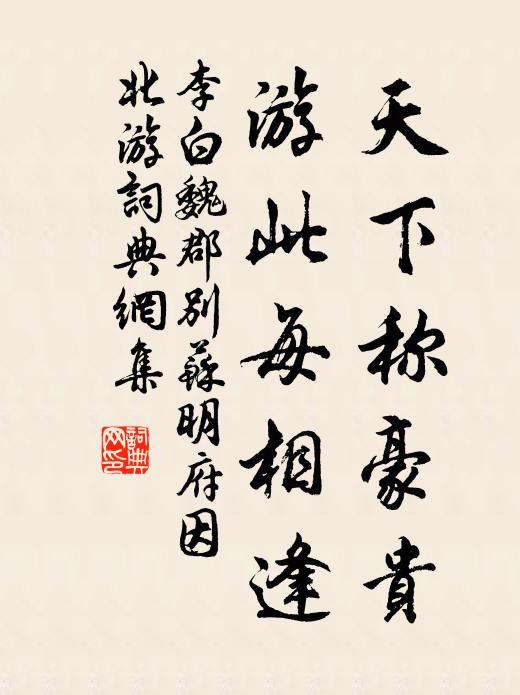 天下称豪貴
游此每相逢
李白魏郡別蘇明府因
北游詞典網集
詞典网印